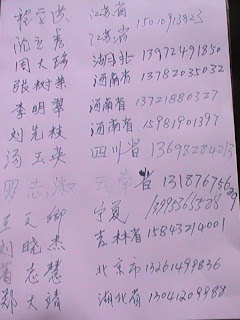 江苏省 15010913823
江苏省
周大 湖北 13972491850
张树 河南省 13782035032
李明翠 河南省 13721880327
刘先枝 河南省 15981901397
汤玉英 四川省 13698284213
罗志 云南省 13187675629
王文卿 宁夏 13995365528
刘晓杰 吉林省 15843214001
葛志慧 北京市 13261499836
郑大靖 湖北省 13041209988